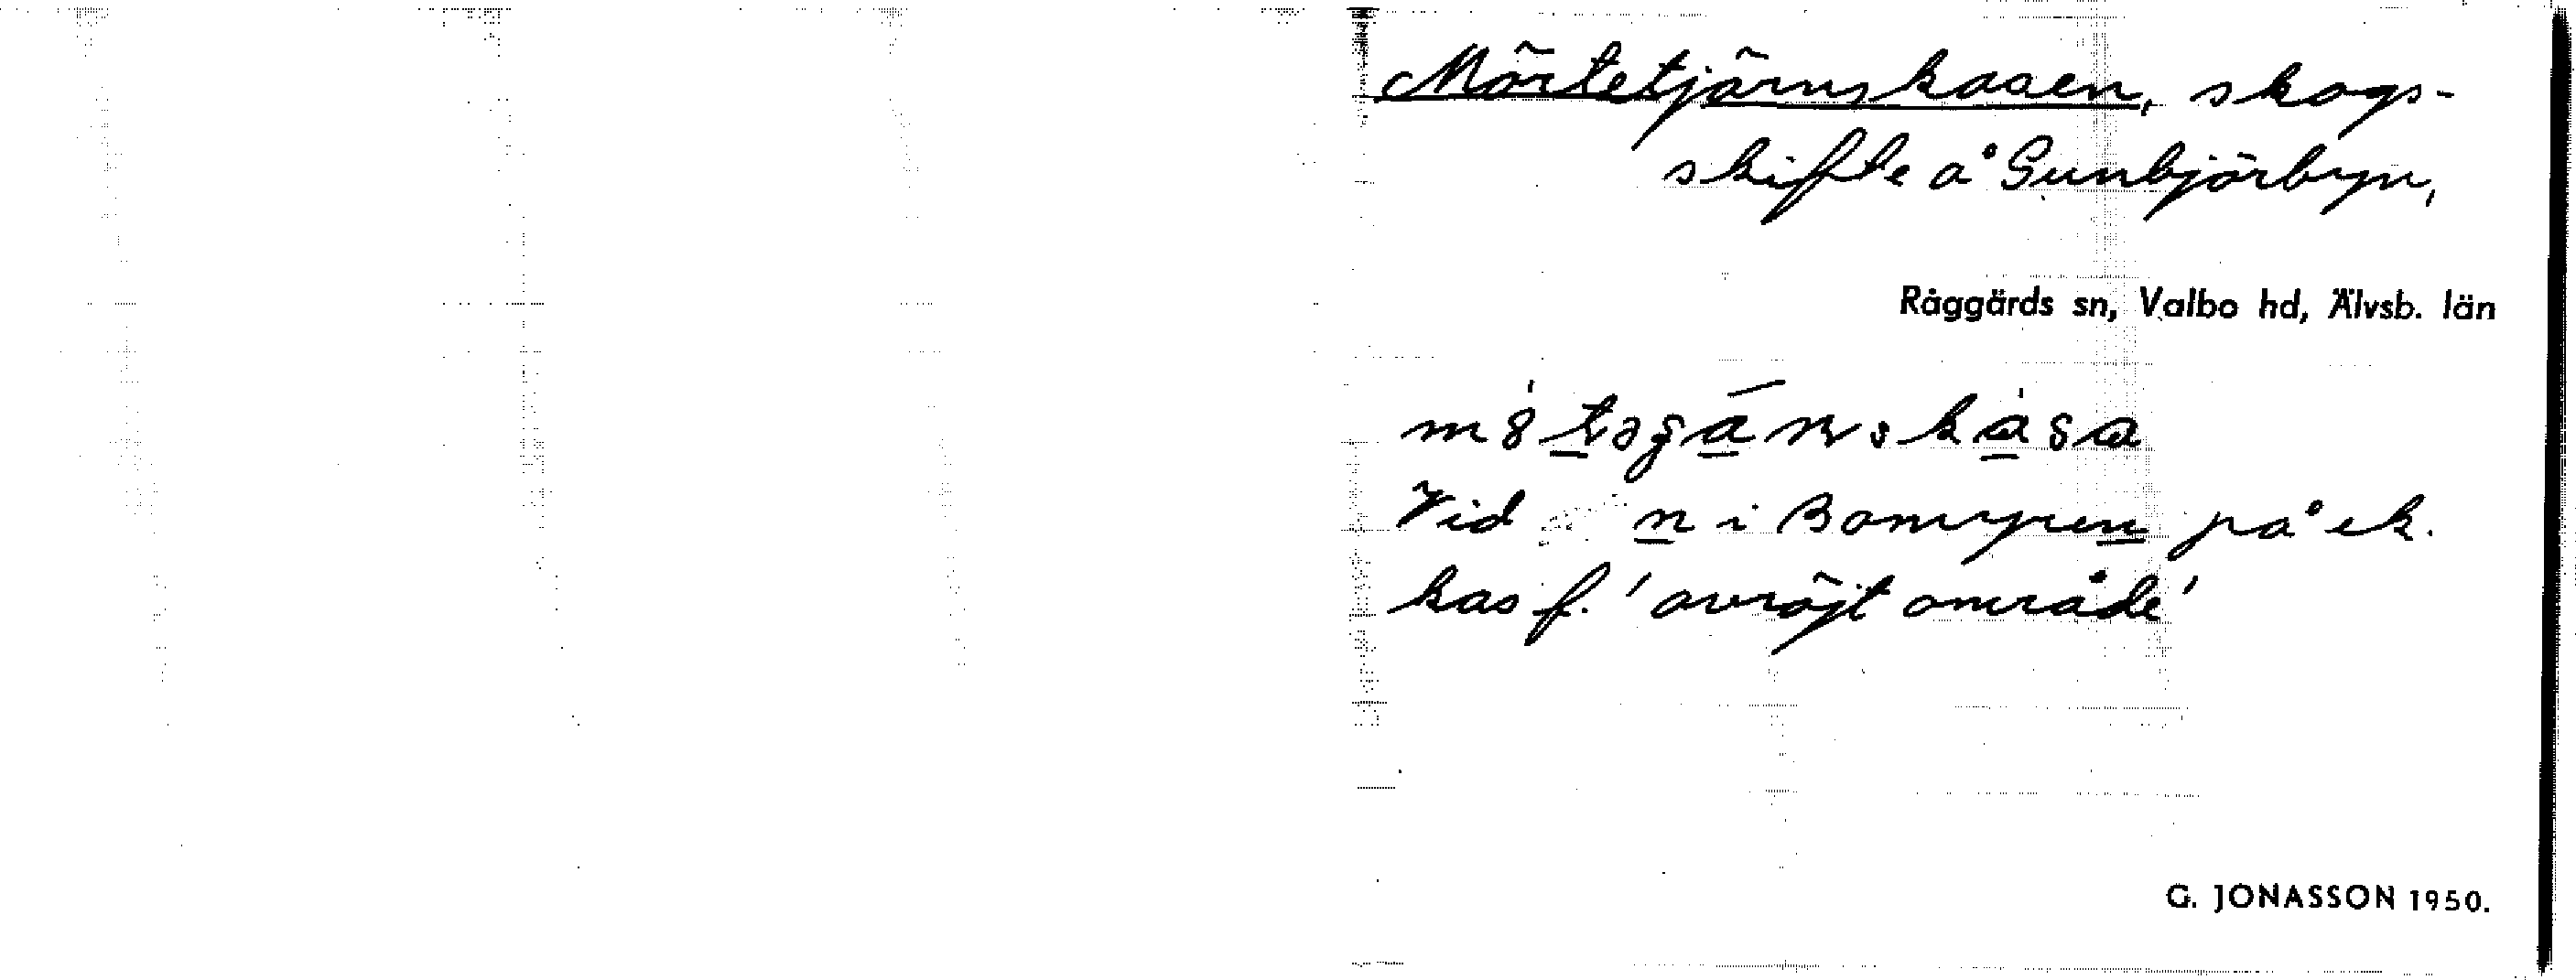 Mörtetjärnskasen, skogs-
skifte å Gunbjörbyn,
Råggärds sn, Valbo hd, Älvsb. län
Vid n i Bomyren på ek.
kas f. 'avröjt område'
G. JONASSON 1950.